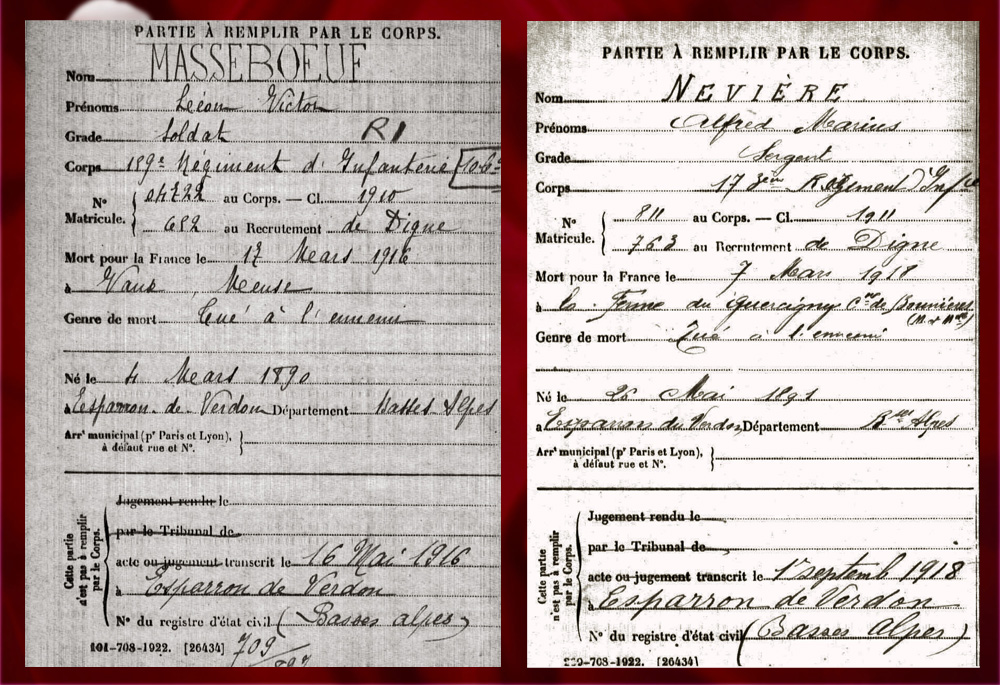 PARTIE À REMPLIR PAR LE CORPS.
Nom MASSEBOEUF
Prénoms Léon Victor
Grade Soldat R1
Corps 189e Régiment d'Infanterie
Nº au Corps. — Cl. 1910
Matricule. 682 au Recrutement de Digne
Mort pour la France le 17 Mars 1916
à Vaux, Meuse
Genre de mort Tué à l'ennemi
Né le 4 Mars 1890
à Esparron de Verdon Département Basses Alpes
Arrt municipal (pr Paris et Lyon),
à défaut rue et Nº.
Cette partie n'est pas à remplir par le Corps.
Jugement rendu le
par le Tribunal de
acte ou jugement transcrit le 16 Mai 1916
à Esparron de Verdon
Nº du registre d'état civil (Basses alpes)
101-708-1922. [26434] 709
PARTIE À REMPLIR PAR LE CORPS.
Nom NEVIÈRE
Prénoms Alfred Marius
Grade Sergent
Corps 173ème Régiment D'Infie
Nº 811 au Corps. — Cl. 1911
Matricule. 763 au Recrutement de Digne
Mort pour la France le 7 Mars 1918
à la Ferme du Cne de
Genre de mort Tué à l'ennemi
Né le 26 Mai 1891
à Esparron du Verdon Département Bses Alpes
Arrt municipal (pr Paris et Lyon),
à défaut rue et Nº.
Cette partie n'est pas à remplir par le Corps.
Jugement rendu le
par le Tribunal de
acte ou jugement transcrit le 1er septemb 1918
à Esparron de Verdon
Nº du registre d'état civil (Basses alpes)
-708-1922. [26434]